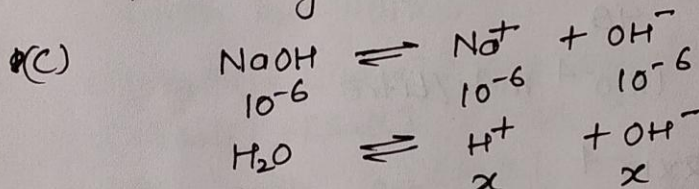 (C) NaOH ⇌ Na⁺ + OH⁻
10⁻⁶ 10⁻⁶ 10⁻⁶
H₂O ⇌ H⁺ + OH⁻
x x